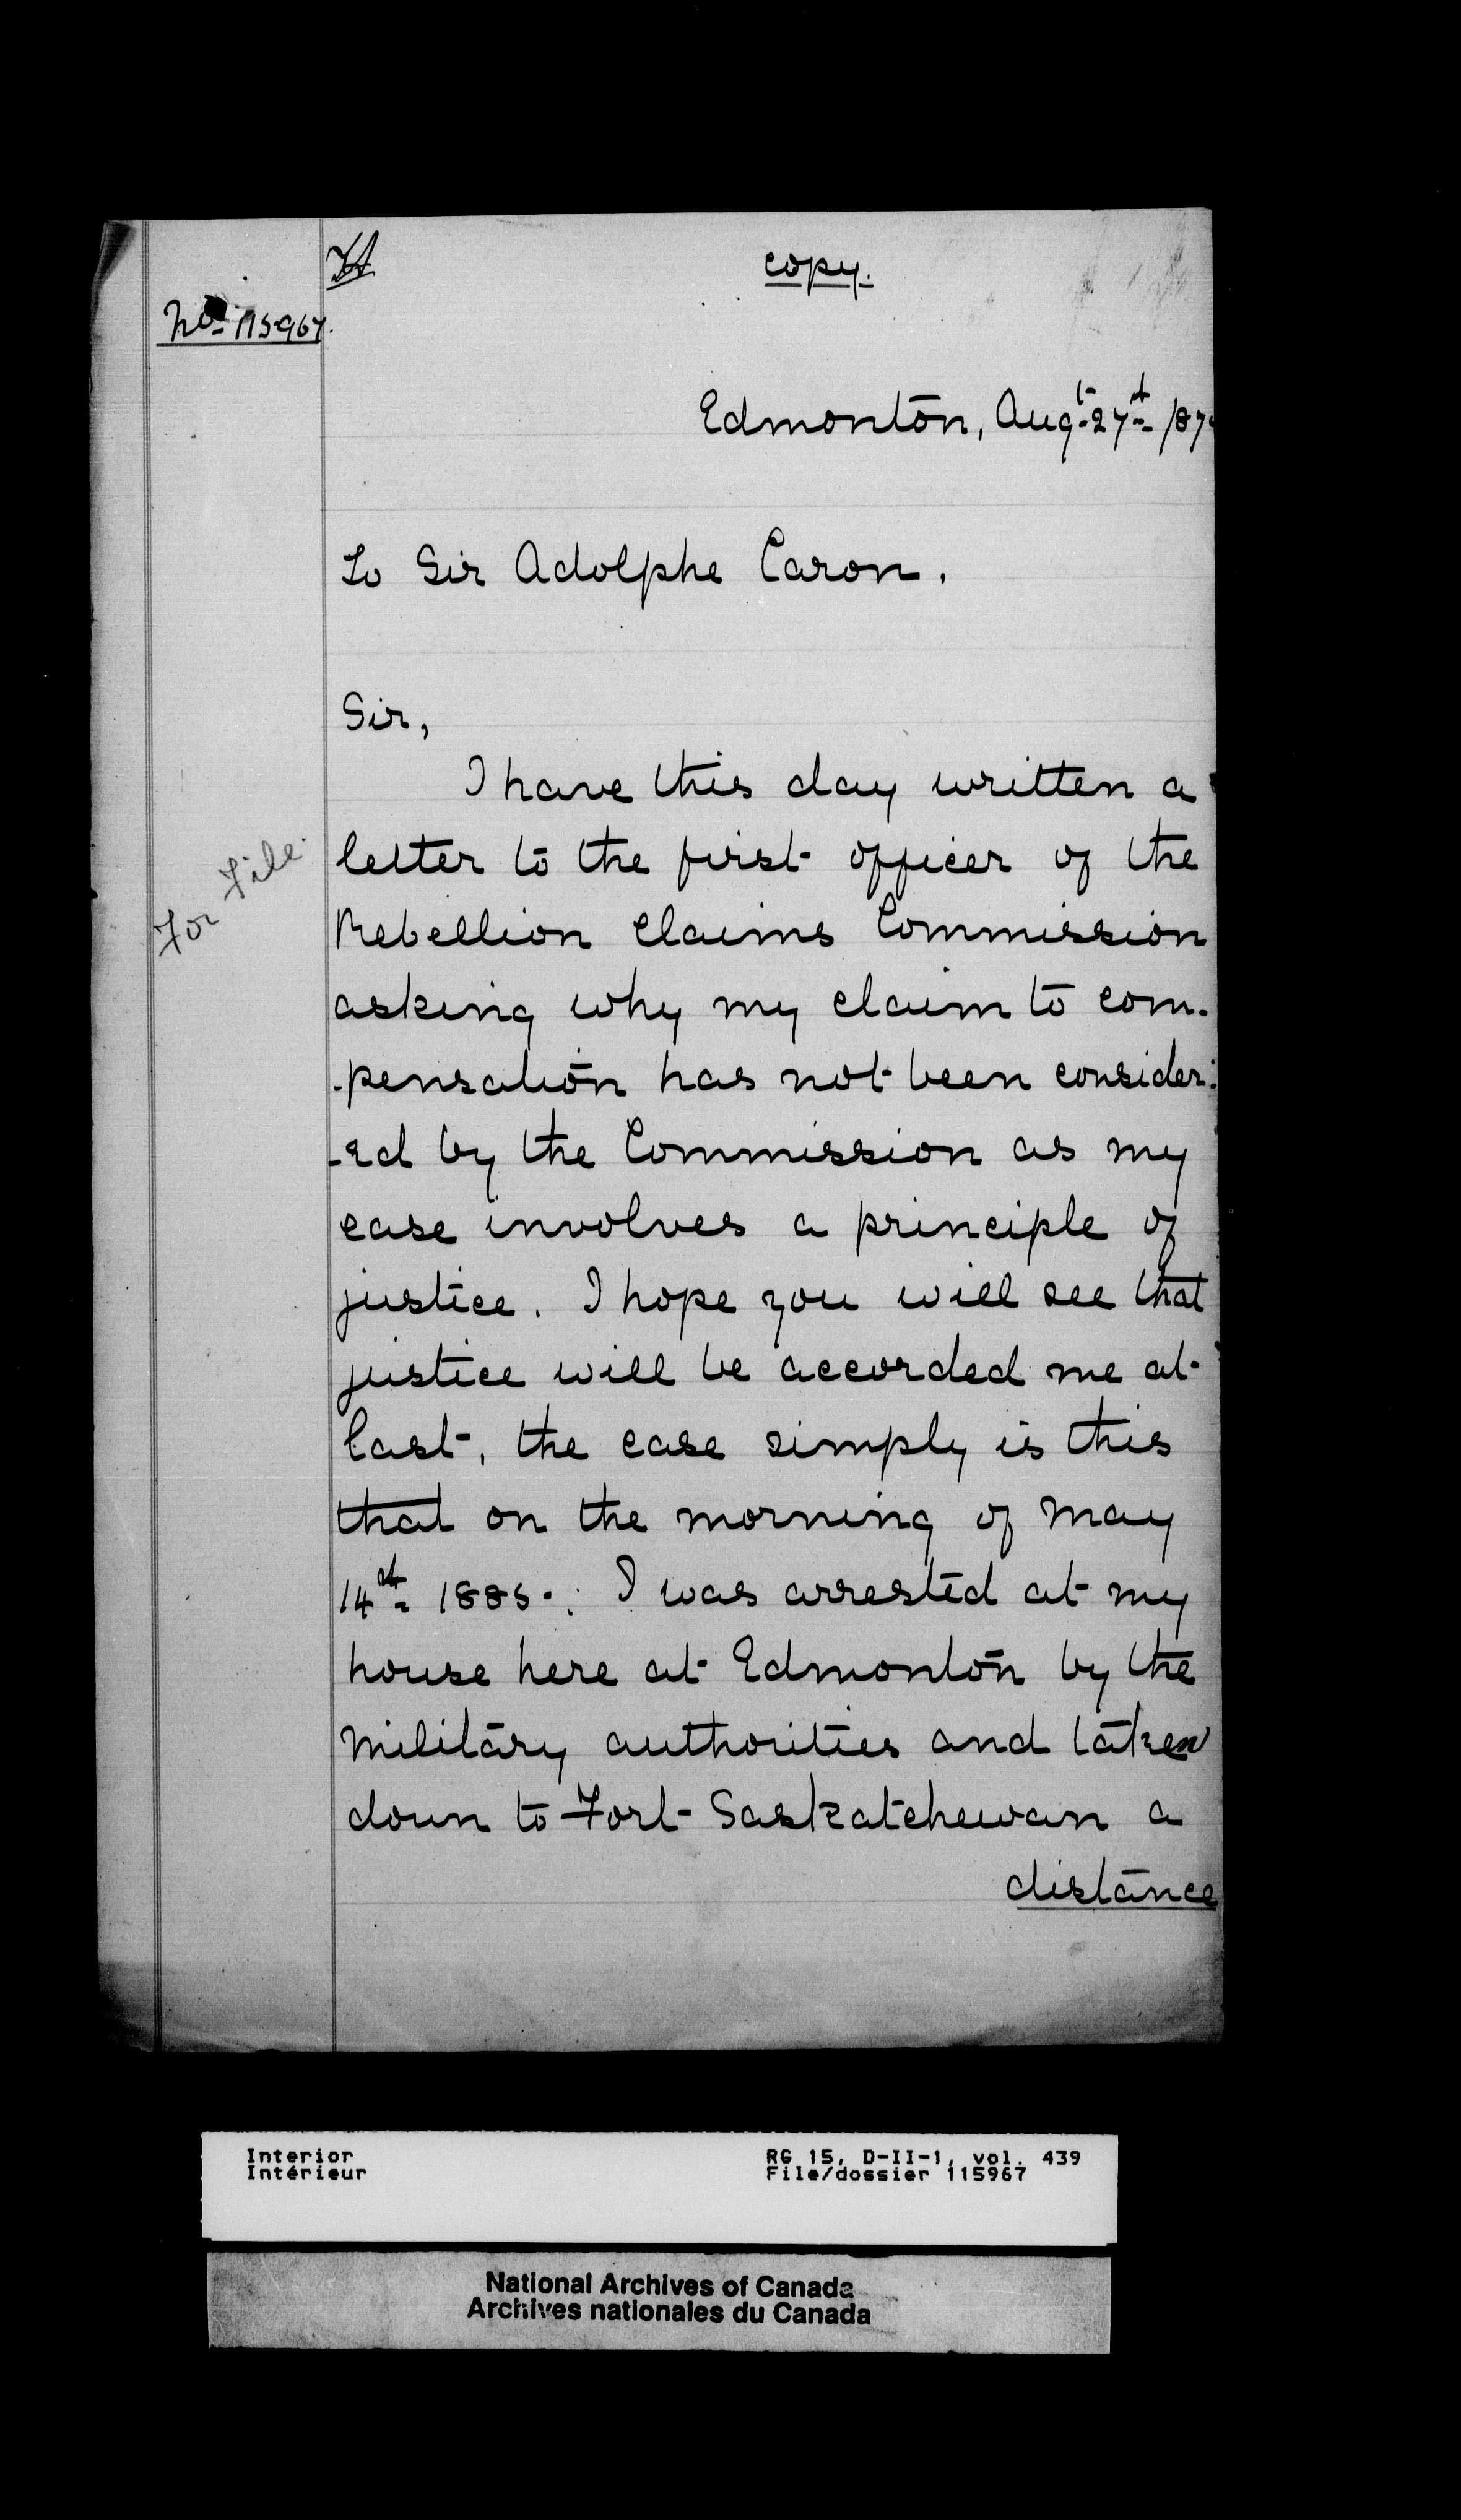 copy.
No. 115967.
Edmonton, Augt. 27th /87
To Sir Adolphe Caron.
Sir,
I have this day written a
letter to the first officer of the
For File.
Rebellion Claims Commission
asking why my claim to com-
-pensation has not been consider:
-ed by the Commission as my
case involves a principle of
justice. I hope you will see that
justice will be accorded me at
last, the case simply is this
that on the morning of May
14th 1885.: I was arrested at my
house here at Edmonton by the
Military authorities and taken
down to Fort Saskatchewan a
distance
Interior RG 15, D-II-1, vol. 439
Intérieur File/dossier 115967
National Archives of Canada
Archives nationales du Canada